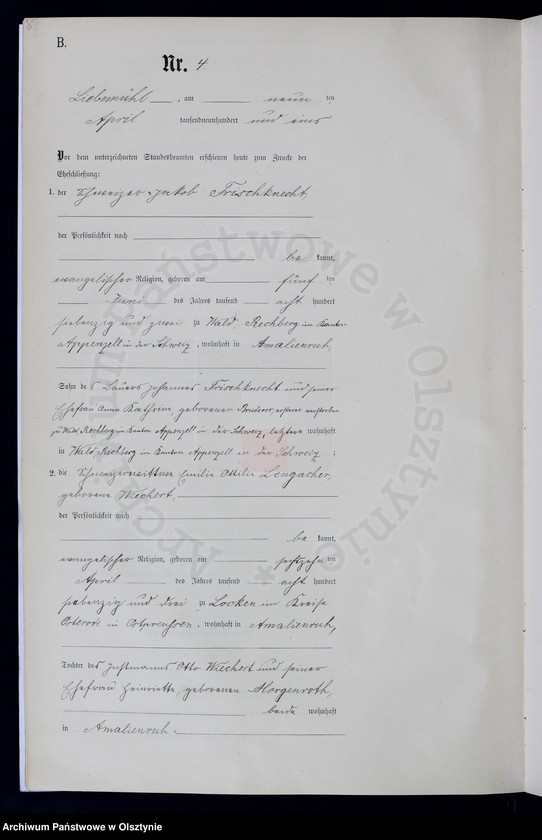 B.
Nr. 4
Liebemühl, am neun ten
April tausendneunhundert und eins
Vor dem unterzeichneten Standesbeamten erschienen heute zum Zwecke der
Eheschließung:
1. der Schweizer Jakob Frischknecht,
der Persönlichkeit nach
be kannt,
evangelischer Religion, geboren am fünf ten
Juni des Jahres tausend acht hundert
siebenzig und zwei zu Wald, Rechberg im Kanton
Appenzell in der Schweiz, wohnhaft in Amalienruh,
Sohn des Bauers Johannes Frischknecht und seiner
Ehefrau Anna Kathrine geborener Bruderer, ersterer verstorben
zu Wald, Rechberg im Kanton Appenzell in der Schweiz, letztere wohnhaft
in Wald, Rechberg im Kanton Appenzell in der Schweiz ;
2. die Schweizerwittwe Emilie Ottilie Lengacher,
geborene Wiechert,
der Persönlichkeit nach
be kannt,
evangelischer Religion, geboren am sechszehn ten
April des Jahres tausend acht hundert
siebenzig und drei zu Locken im Kreise
Osterode in Ostpreußen, wohnhaft in Amalienruh,
Tochter des Instmanns Otto Wiechert und seiner
Ehefrau Heinriette, geborenen Morgenroth,
beide wohnhaft
in Amalienruh.
Archiwum Państwowe w Olsztynie
Archiwum Państwowe w Olsztynie